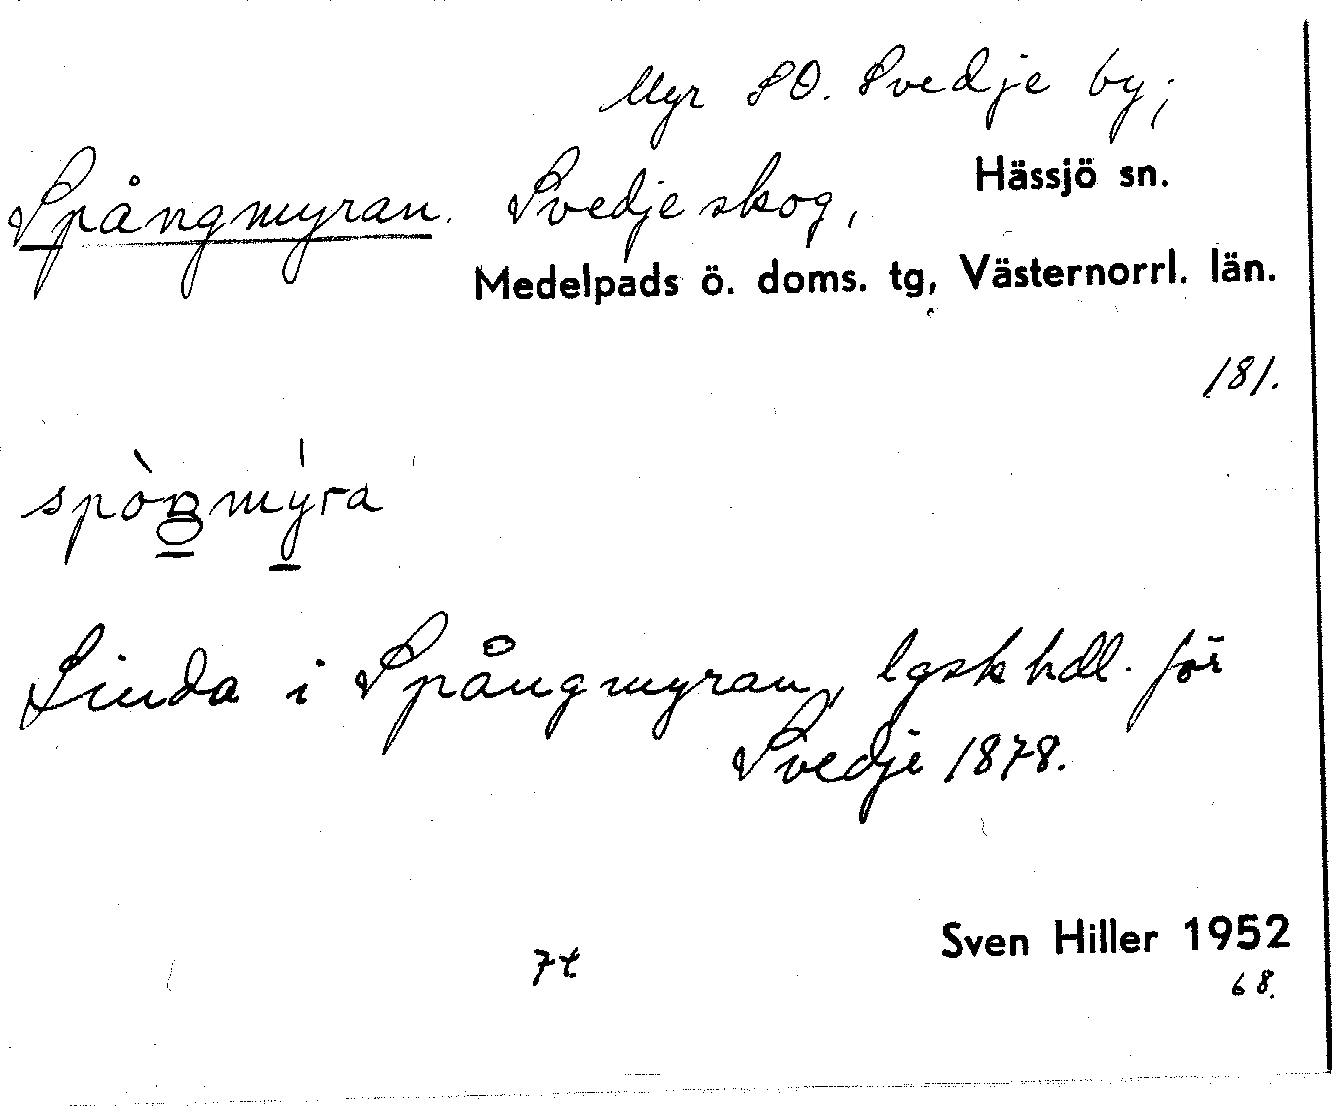 Myr SO. Svedje by;
Spångmyran. Svedjeskog, Hässjö sn.
Medelpads ö. doms. tg, Västernorrl. län.
181.
Linda i Spångmyran, lgsk hdl. för
Svedje 1878.
7t
Sven Hiller 1952
68.